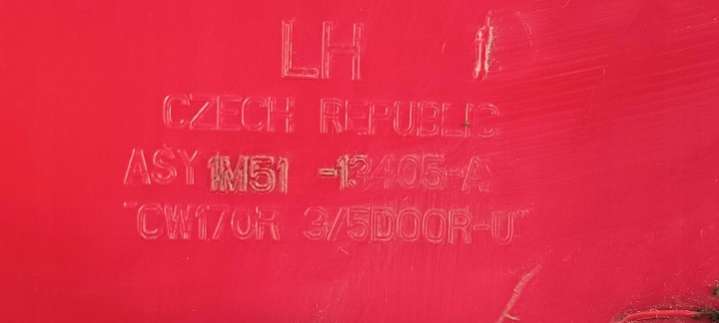 LH 1
CZECH REPUBLIC
ASY 1M51 -13405-A
"CW170R 3/5DOOR-U"